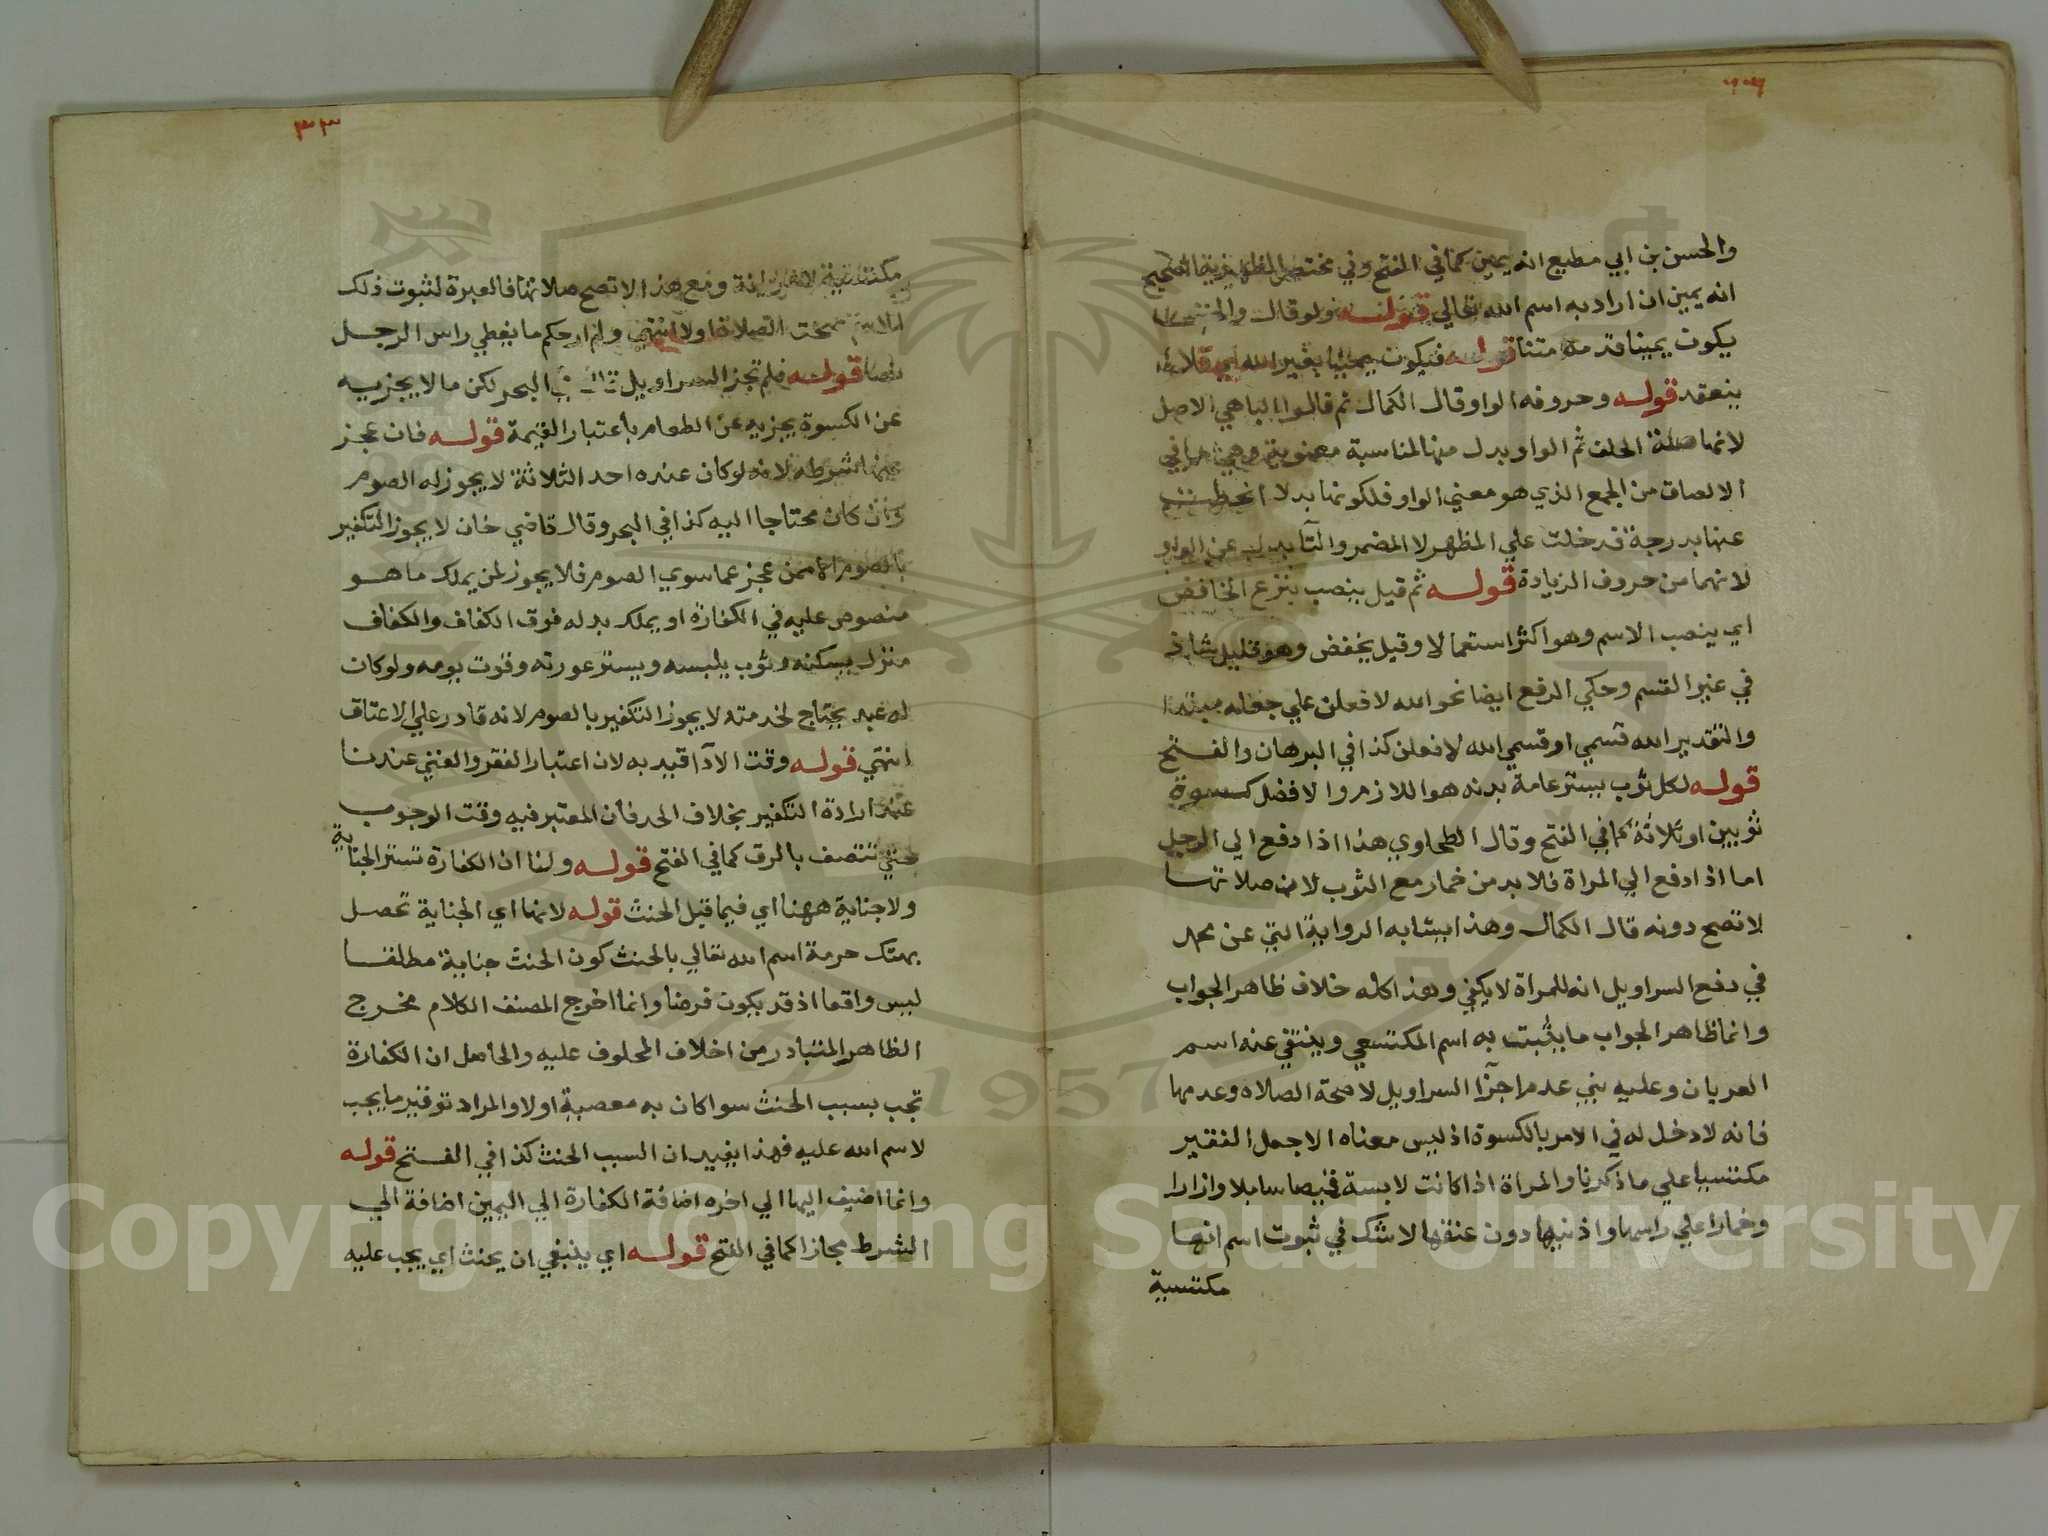 والحسن بن ابي مطيع انه يمين كما في الفتح وفي مختصر الظهيرية الصحيح
انه يمين ان اراد به اسم الله تعالي قوله ولو قال والحق
يكون يمينا قدمه متنا قوله فيكون يمينا بغير الله
ينعقد قوله وحروفه الواو قال الكمال ثم قالوا الباهي الاصل
لانها صلة الحلف ثم الواو بدل منها لمناسبة معنوية وهي ما في
الالصاق من الجمع الذي هو معني الواو فلكونها بدلا انحطت
عنها بدرجة فدخلت علي المظهر لا المضمر والتا بدل عن الواو
لانهما من حروف الزيادة قوله ثم قيل ينصب بنزع الخافض
اي ينصب الاسم وهو اكثر استعمالا وقيل يخفض وهو قليل شاذ
في غير القسم وحكي الرفع ايضا نحو الله لافعلن علي جعله مبتدا
والتقدير الله قسمي او قسمي الله لافعلن كذا في البرهان والفتح
قوله لكل ثوب يستر عامة بدنه هو اللازم والافضل كسوة
ثوبين او ثلاثة كما في الفتح وقال الطحاوي هذا اذا دفع الي الرجل
اما اذا دفع الي المراة فلا بد من خمار مع الثوب لان صلاتها
لا تصح دونه قال الكمال وهذا يشابه الرواية التي عن محمد
في دفع السراويل انه للمراة لا يكفي وهذا كله خلاف ظاهر الجواب
وانما ظاهر الجواب ما يثبت به اسم المكتسي وينتفي عنه اسم
العريان وعليه بني عدم اجزا السراويل لا صحة الصلاه وعدمها
فانه لا دخل له في الامر بالكسوة اذ ليس معناه الا جعل الفقير
مكتسيا علي ما ذكرنا والمراة اذا كانت لابسة قميصا سابلا وازارا
وخمارا علي راسها واذنيها دون عنقها لا شك في ثبوت اسم انها
مكتسية
٣٣
مكتسية لا عريانة ومع هذا لا تصح صلاتها فالعبرة لثبوت ذلك
الاسم صحت الصلاة اولا انتهي ولم ار حكم ما يغطي راس الرجل
قوله فلم تجز السراويل قال في البحر لكن ما لا يجزيه
عن الكسوة يجزيه عن الطعام باعتبار القيمة قوله فان عجز
عنها شرطه لانه لو كان عنده احد الثلاثة لا يجوز له الصوم
وان كان محتاجا اليه كذا في البحر وقال قاضي خان لا يجوز التكفير
بالصوم الا ممن عجز عما سوي الصوم فلا يجوز لمن يملك ما هو
منصوص عليه في الكفارة او يملك بدله فوق الكفاف والكفاف
منزل يسكنه وثوب يلبسه ويستر عورته وقوت يومه ولو كان
له عبد يحتاج لخدمته لا يجوز التكفير بالصوم لانه قادر علي الاعتاق
انتهي قوله وقت الادا قيد به لان اعتبار الفقر والغني عندنا
عند ارادة التكفير بخلاف الحد فان المعتبر فيه وقت الوجوب
حتي تتنصف بالرق كما في الفتح قوله ولنا ان الكفارة تستر الجناية
ولا جناية ههنا اي فيما قبل الحنث قوله لانها اي الجناية تحصل
بهتك حرمة اسم الله تعالي بالحنث كون الحنث جناية مطلقا
ليس واقعا اذ قد يكون فرضا وانما اخرج المصنف الكلام مخرج
الظاهر المتبادر من اخلاف المحلوف عليه والحاصل ان الكفارة
تجب بسبب الحنث سوا كان به معصية اولا والمراد توفير ما يجب
لاسم الله عليه فهذا يفيد ان السبب الحنث كذا في الفتح قوله
وانما اضيف اليها الي اخره اضافة الكفارة الي اليمين اضافة الي
الشرط مجازا كما في الفتح قوله اي ينبغي ان يحنث اي يجب عليه
Copyright © King Saud University
1957